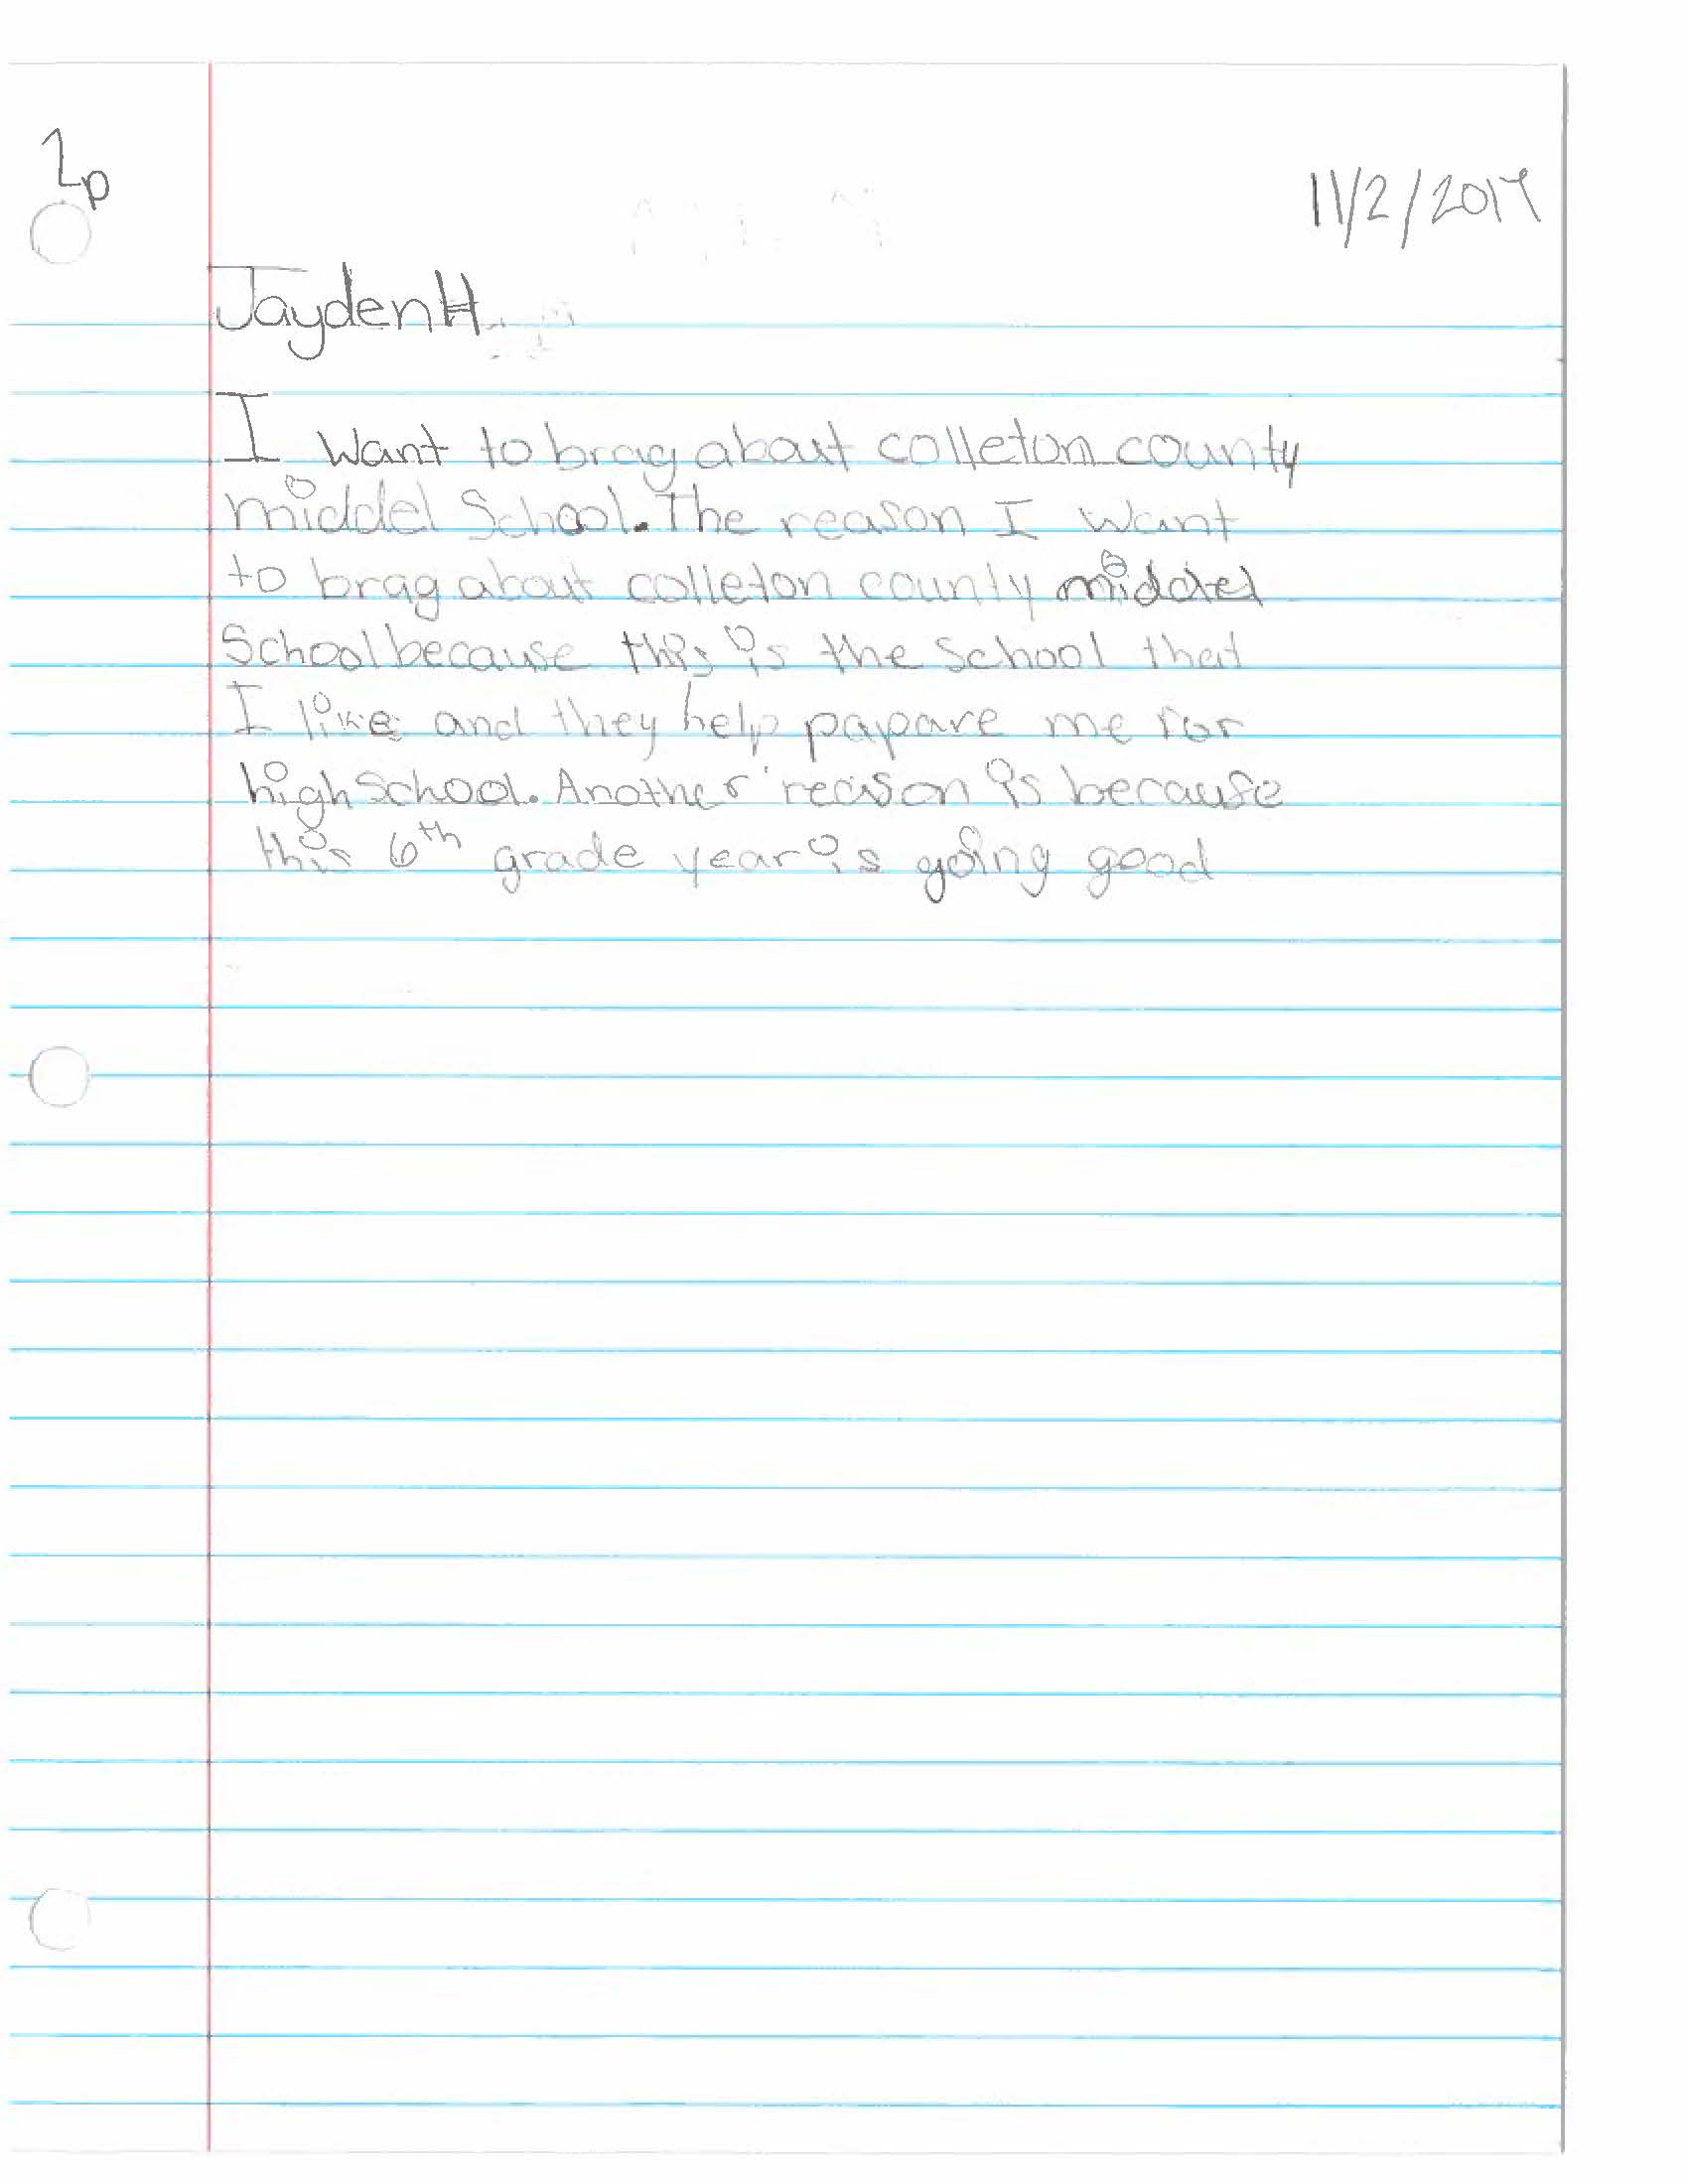 1p
11/2/2017
Jayden H
I want to brag about colleton county
middel School. The reason I want
to brag about colleton county middel
School because this is the school that
I like and they help papare me for
high school. Another reason is because
this 6th grade year is going good